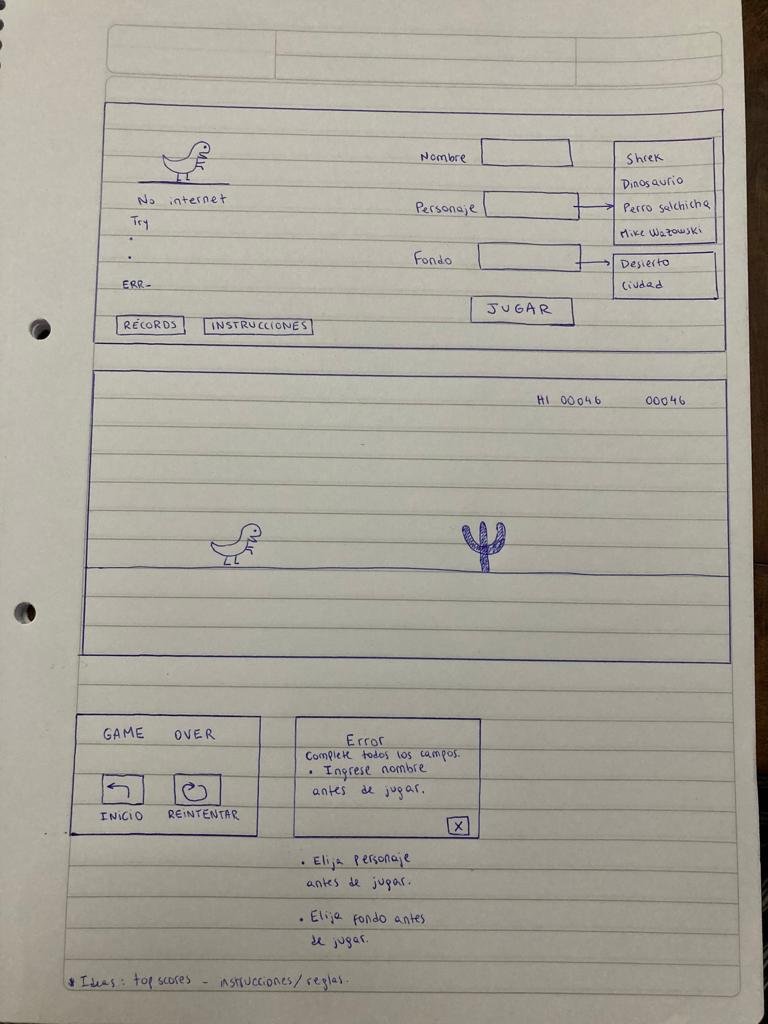 No internet
Try
.
.
ERR-
RÉCORDS
INSTRUCCIONES
Nombre
Personaje
Fondo
JUGAR
Shrek
Dinosaurio
Perro salchicha
Mike Wazowski
Desierto
Ciudad
HI 00046 00046
GAME OVER
INICIO
REINTENTAR
Error
Complete todos los campos.
• Ingrese nombre
antes de jugar.
X
• Elija personaje
antes de jugar.
• Elija fondo antes
de jugar.
* Ideas: top scores - instrucciones/reglas.